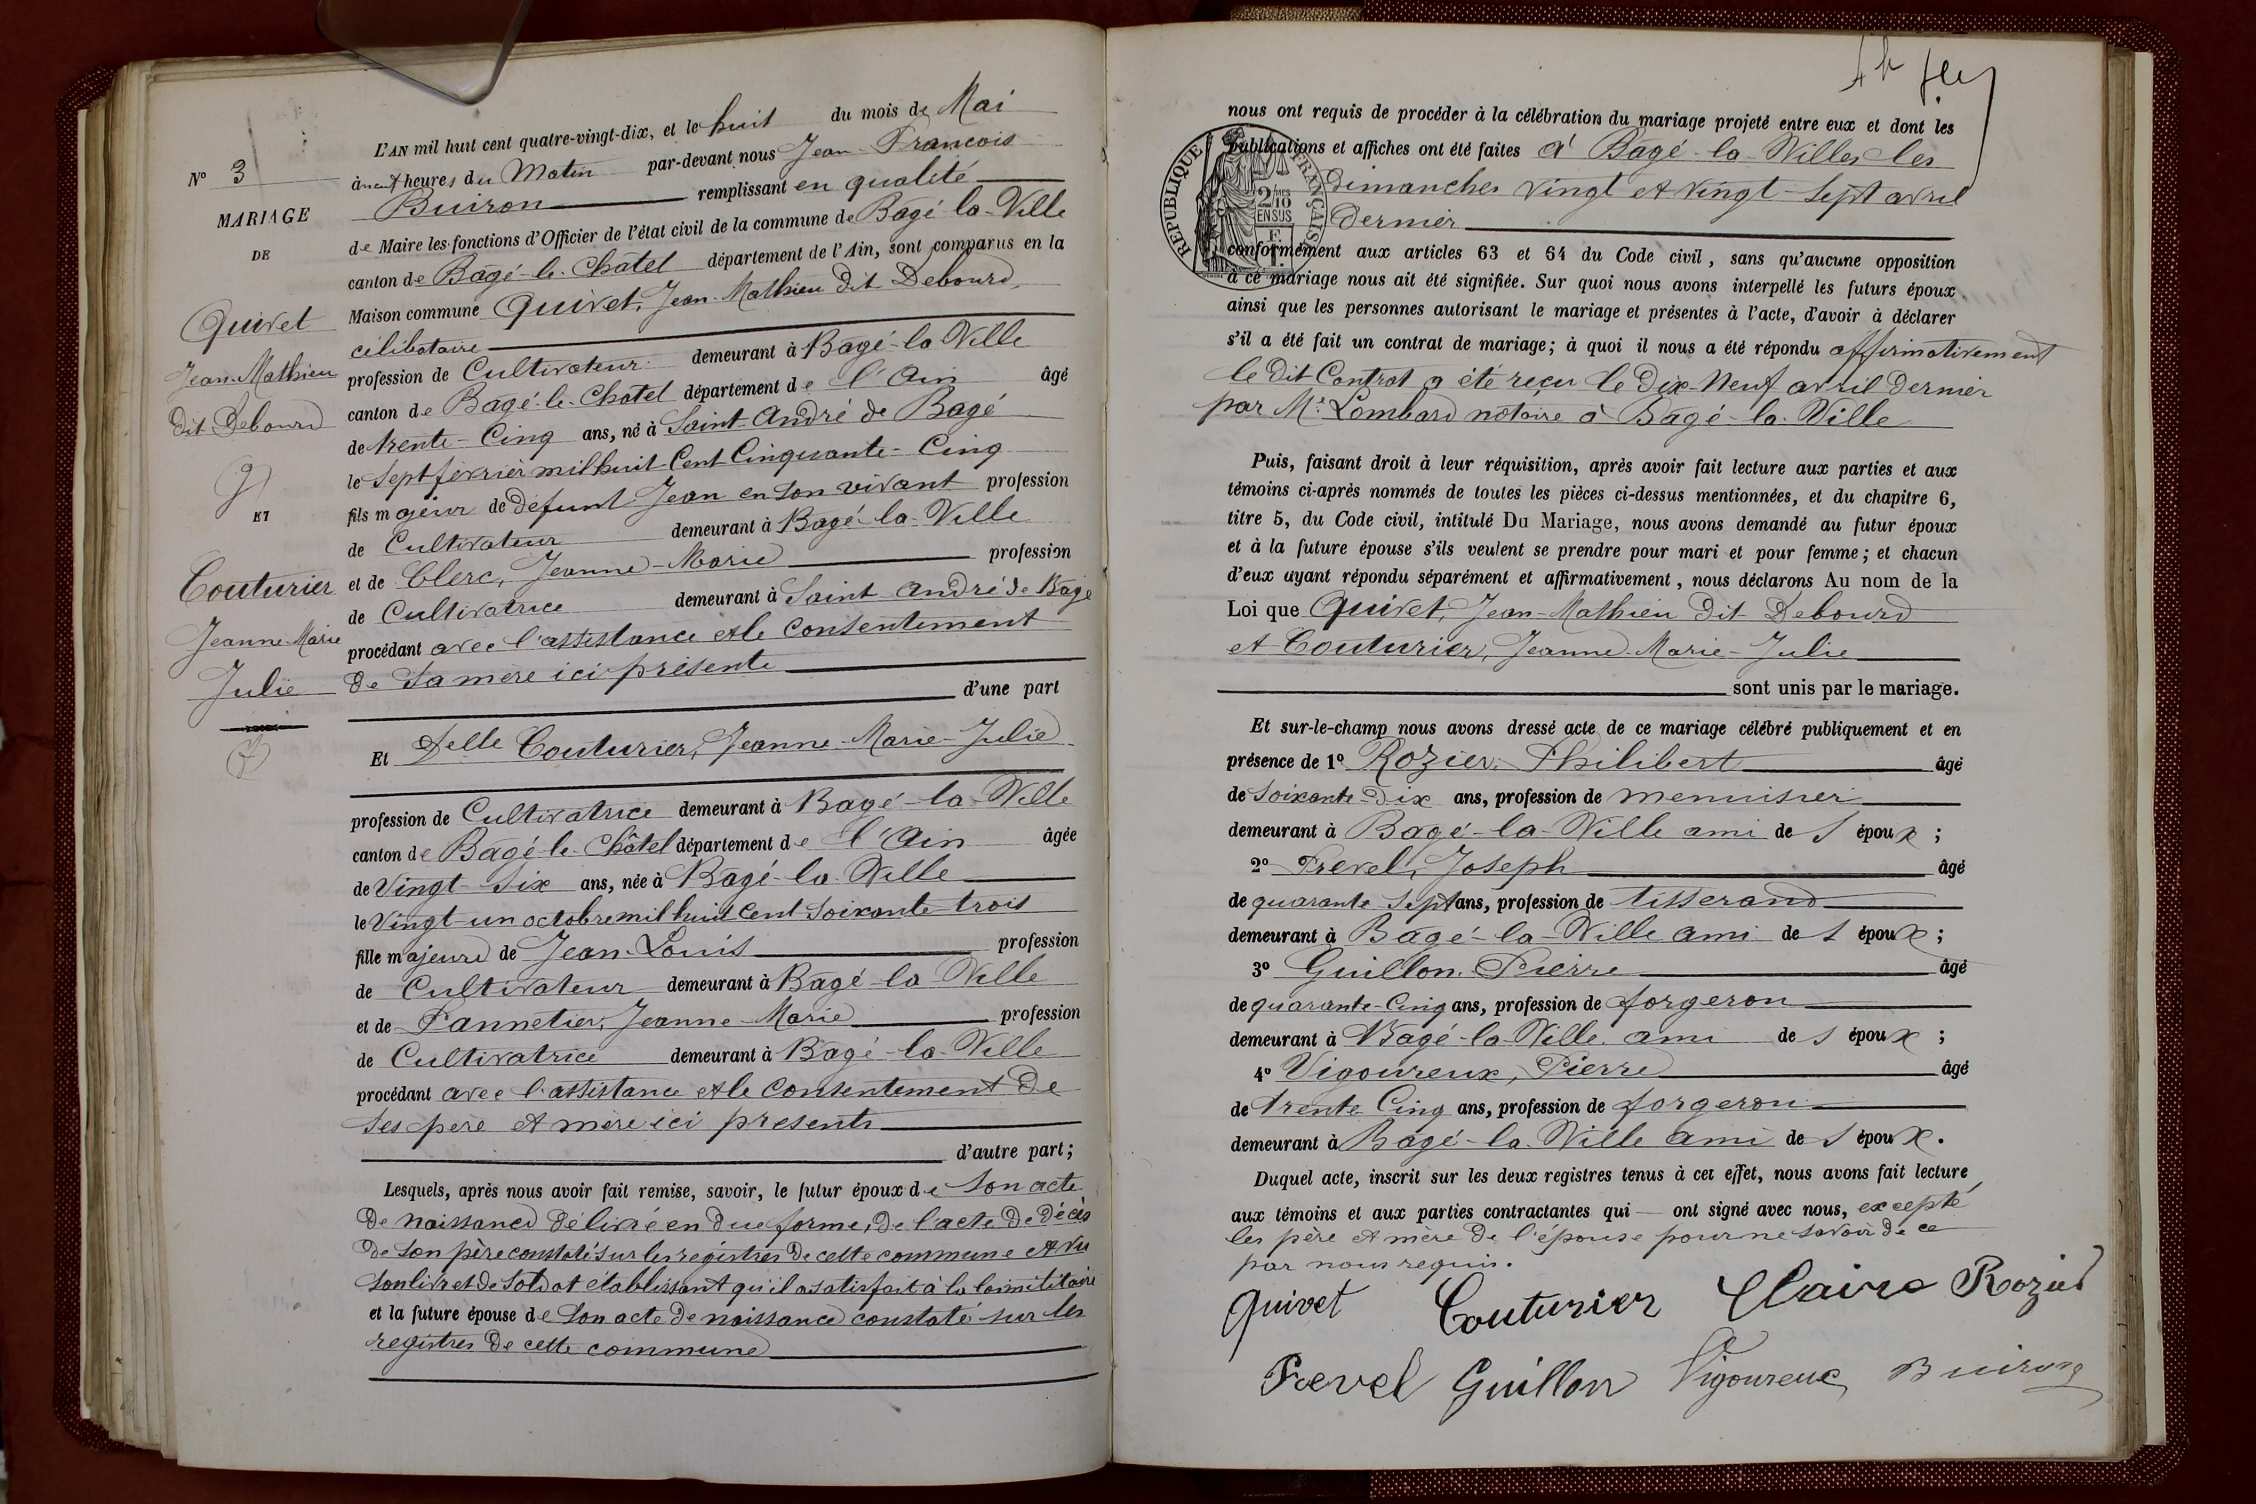 N° 3
MARIAGE
DE
Quivet
Jean-Mathieu
dit Debourd
ET
Couturier
Jeanne-Marie
Julie
L'AN mil huit cent quatre-vingt-dix, et le huit du mois de Mai
à neuf heures du Matin par-devant nous Jean-François
Buiron remplissant en qualité
de Maire les fonctions d'Officier de l'état civil de la commune de Bagé-la-Ville
canton de Bagé-le-Châtel département de l'Ain, sont comparus en la
Maison commune Quivet, Jean-Mathieu dit Debourd,
célibataire
profession de Cultivateur demeurant à Bagé-la-Ville
canton de Bagé-le-Châtel département de l'Ain âgé
de trente-cinq ans, né à Saint-André de Bagé
le sept février mil huit cent cinquante-cinq
fils majeur de défunt Jean en son vivant profession
de Cultivateur demeurant à Bagé-la-Ville
et de Clerc, Jeanne-Marie profession
de Cultivatrice demeurant à Saint André de Bagé
procédant avec l'assistance et le consentement
de sa mère ici présente
d'une part
Et Delle Couturier, Jeanne-Marie-Julie
profession de Cultivatrice demeurant à Bagé-la-Ville
canton de Bagé-le-Châtel département de l'Ain âgée
de vingt-six ans, née à Bagé-la-Ville
le vingt-un octobre mil huit cent soixante-trois
fille majeure de Jean-Louis profession
de Cultivateur demeurant à Bagé-la-Ville
et de Pannetier, Jeanne-Marie profession
de Cultivatrice demeurant à Bagé-la-Ville
procédant avec l'assistance et le consentement de
ses père et mère ici présents
d'autre part;
Lesquels, après nous avoir fait remise, savoir, le futur époux de son acte
de naissance délivré en due forme, de l'acte de décès
de son père constaté sur les registres de cette commune et vu
son livret de soldat établissant qu'il a satisfait à la loi militaire
et la future épouse de son acte de naissance constaté sur les
registres de cette commune
nous ont requis de procéder à la célébration du mariage projeté entre eux et dont les
publications et affiches ont été faites à Bagé-la-Ville, les
dimanches vingt et vingt-sept avril
dernier
RÉPUBLIQUE FRANÇAISE
2/10 EN SUS
conformément aux articles 63 et 64 du Code civil, sans qu'aucune opposition
à ce mariage nous ait été signifiée. Sur quoi nous avons interpellé les futurs époux
ainsi que les personnes autorisant le mariage et présentes à l'acte, d'avoir à déclarer
s'il a été fait un contrat de mariage; à quoi il nous a été répondu affirmativement
le dit Contrat a été reçu le dix-neuf avril dernier
par Me Lombard notaire à Bagé-la-Ville
Puis, faisant droit à leur réquisition, après avoir fait lecture aux parties et aux
témoins ci-après nommés de toutes les pièces ci-dessus mentionnées, et du chapitre 6,
titre 5, du Code civil, intitulé Du Mariage, nous avons demandé au futur époux
et à la future épouse s'ils veulent se prendre pour mari et pour femme; et chacun
d'eux ayant répondu séparément et affirmativement, nous déclarons Au nom de la
Loi que Quivet, Jean-Mathieu dit Debourd
et Couturier, Jeanne-Marie-Julie
sont unis par le mariage.
Et sur-le-champ nous avons dressé acte de ce mariage célébré publiquement et en
présence de 1° Rozier, Philibert âgé
de soixante-dix ans, profession de menuisier
demeurant à Bagé-la-Ville ami des époux;
2° Frevel, Joseph âgé
de quarante sept ans, profession de tisserand
demeurant à Bagé-la-Ville ami des époux;
3° Guillon, Pierre âgé
de quarante-cinq ans, profession de forgeron
demeurant à Bagé-la-Ville ami des époux;
4° Vigoureux, Pierre âgé
de trente cinq ans, profession de forgeron
demeurant à Bagé-la-Ville ami des époux.
Duquel acte, inscrit sur les deux registres tenus à cet effet, nous avons fait lecture
aux témoins et aux parties contractantes qui ont signé avec nous, excepté
les père et mère de l'épouse pour ne savoir de ce
par nous requis.
Quivet Couturier Claire Rozier
Frevel Guillon Vigoureux Buiron